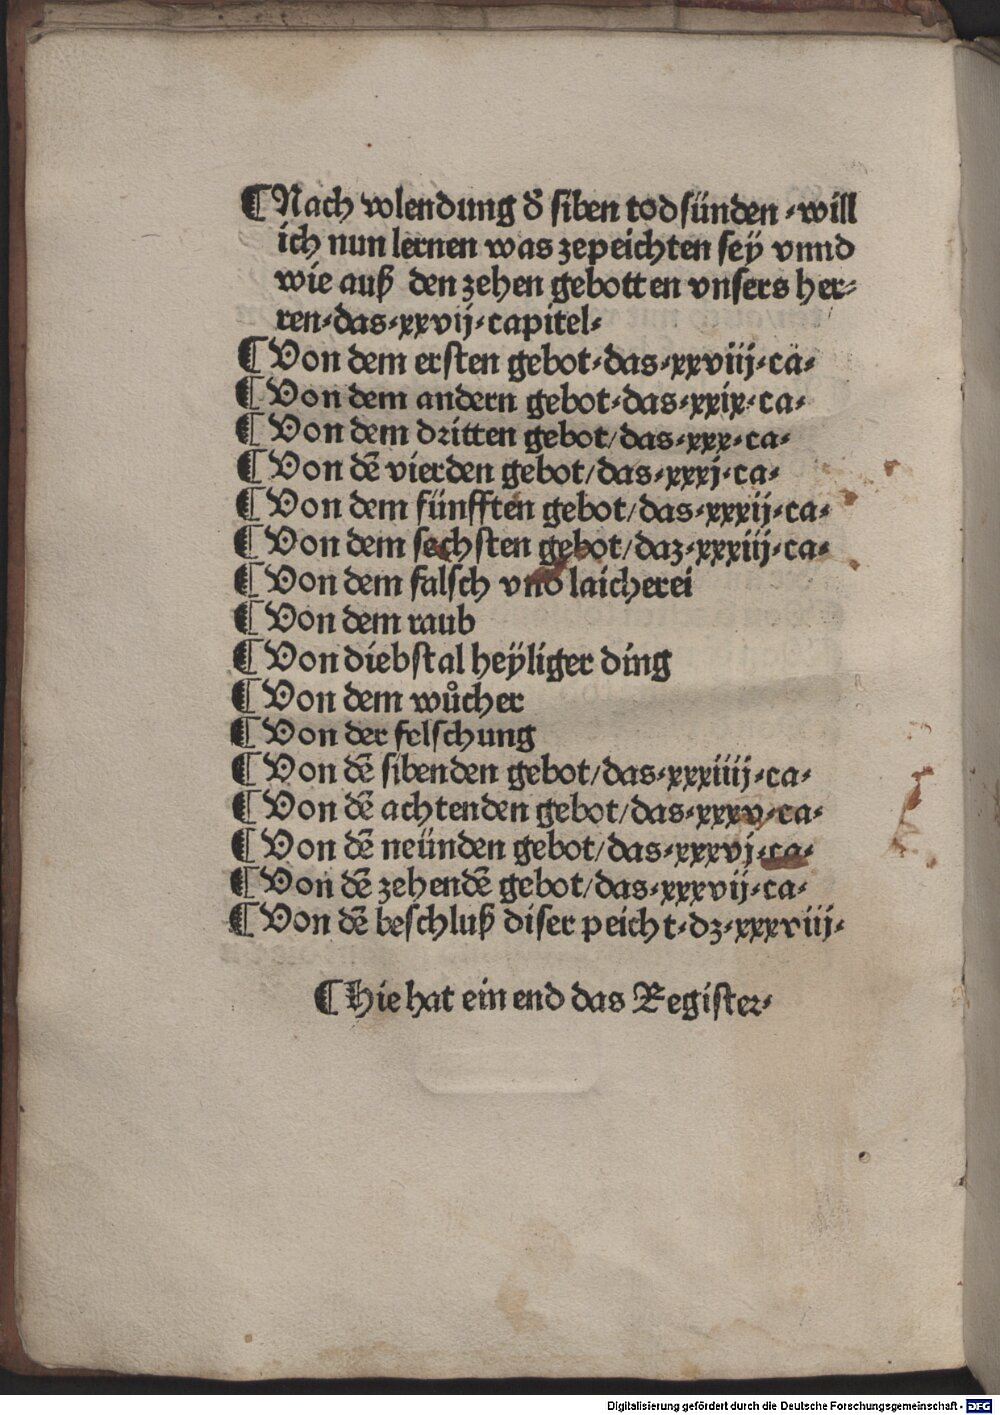 ¶Nach volendung dˀ siben todsünden · will
ich nun lernen was zepeichten seÿ vnnd
wie auß den zehen gebotten vnsers her⸗
ren·das·xxvij·capitel·
¶Von dem ersten gebot·das·xxviij·ca·
¶Von dem andern gebot·das·xxix·ca·
¶Von dem dꝛitten gebot/das·xxx·ca·
¶Von dē vierden gebot/das·xxxj·ca·
¶Von dem fünfften gebot/das·xxxij·ca·
¶Von dem sechsten gebot/daz·xxxiij·ca·
¶Von dem falsch vnd laicherei
¶Von dem raub
¶Von diebstal heÿliger ding
¶Von dem wůcher
¶Von der felschung
¶Von dē sibenden gebot/das·xxxiiij·ca·
¶Von dē achtenden gebot/das·xxxv·ca·
¶Von dē neünden gebot/das·xxxvj·ca·
¶Von dē zehendē gebot/das·xxxvij·ca·
¶Von dē beschluß diser peicht·dz·xxxviij·
¶Hie hat ein end das Register·
Digitalisierung gefördert durch die Deutsche Forschungsgemeinschaft - DFG